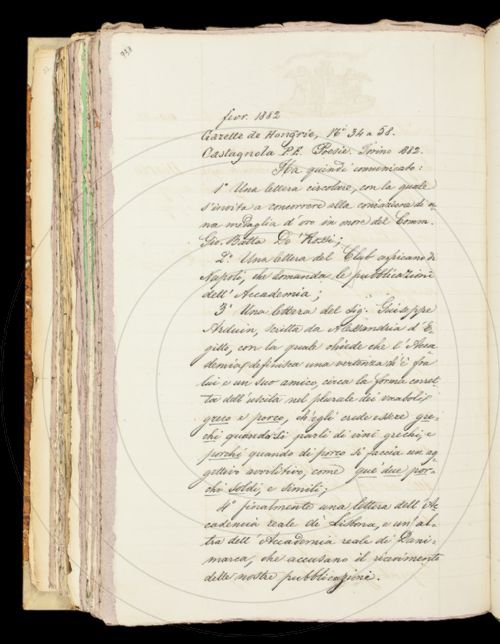 938
fevr. 1882
Gazette de Hongrie, N.i 34 a 38.
Castagnola P.E. Poesie. Torino 882.
Ha quindi comunicato:
1° Una lettera circolare, con la quale
s'invita a concorrere alla coniazione di u
na medaglia d'oro in onore del Comm.
Gio. Batta De' Rossi;
2.° Una lettera del Club africano di
Napoli, che domanda le pubblicazioni
dell'Accademia;
3° Una lettera del Sig. Giuseppe
Arduin, scritta da Alessandria d'E
gitto, con la quale chiede che l'Acca
demia definisca una vertenza ch'è fra
lui e un suo amico, circa la forma corret
ta dell'uscita nel plurale dei vocaboli
greco e porco, ch'egli crede essere gre-
chi quando si parli di vini grechi, e
porchi quando di porco si faccia un ag
gettivo avvilitivo, come que' due por-
chi soldi, e simili;
4° finalmente una lettera dell'Ac
cademia reale di Lisbona, e un'al-
tra dell'Accademia reale di Dani-
marca, che accusano il ricevimento
delle nostre pubblicazioni.